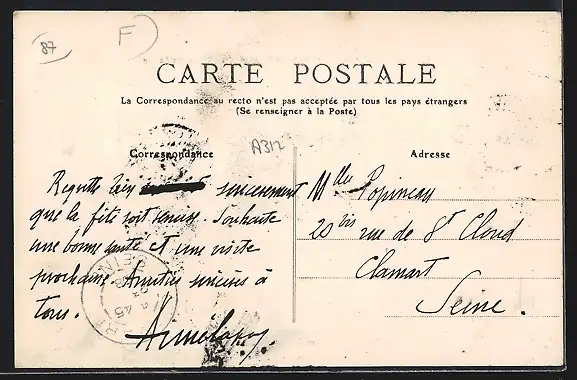 87
F
CARTE POSTALE
La Correspondance au recto n'est pas acceptée par tous les pays étrangers
(Se renseigner à la Poste)
A312
Correspondance
Regrette bien sincerement
que la fête soit remise. Souhaite
une bonne santé et une visite
prochaine. Amitiés sincères à
tous.
Adresse
Mlle Popineau
20 bis rue de St Cloud
Clamart
Seine.
SEINE